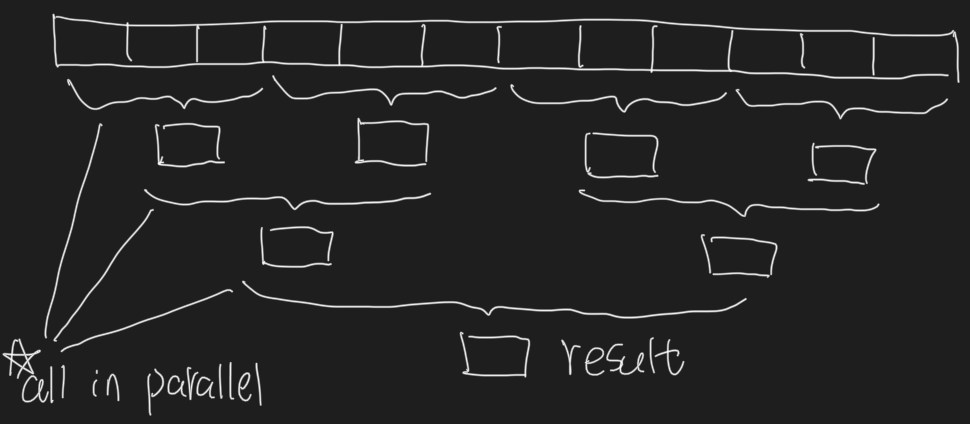 result
☆ all in parallel